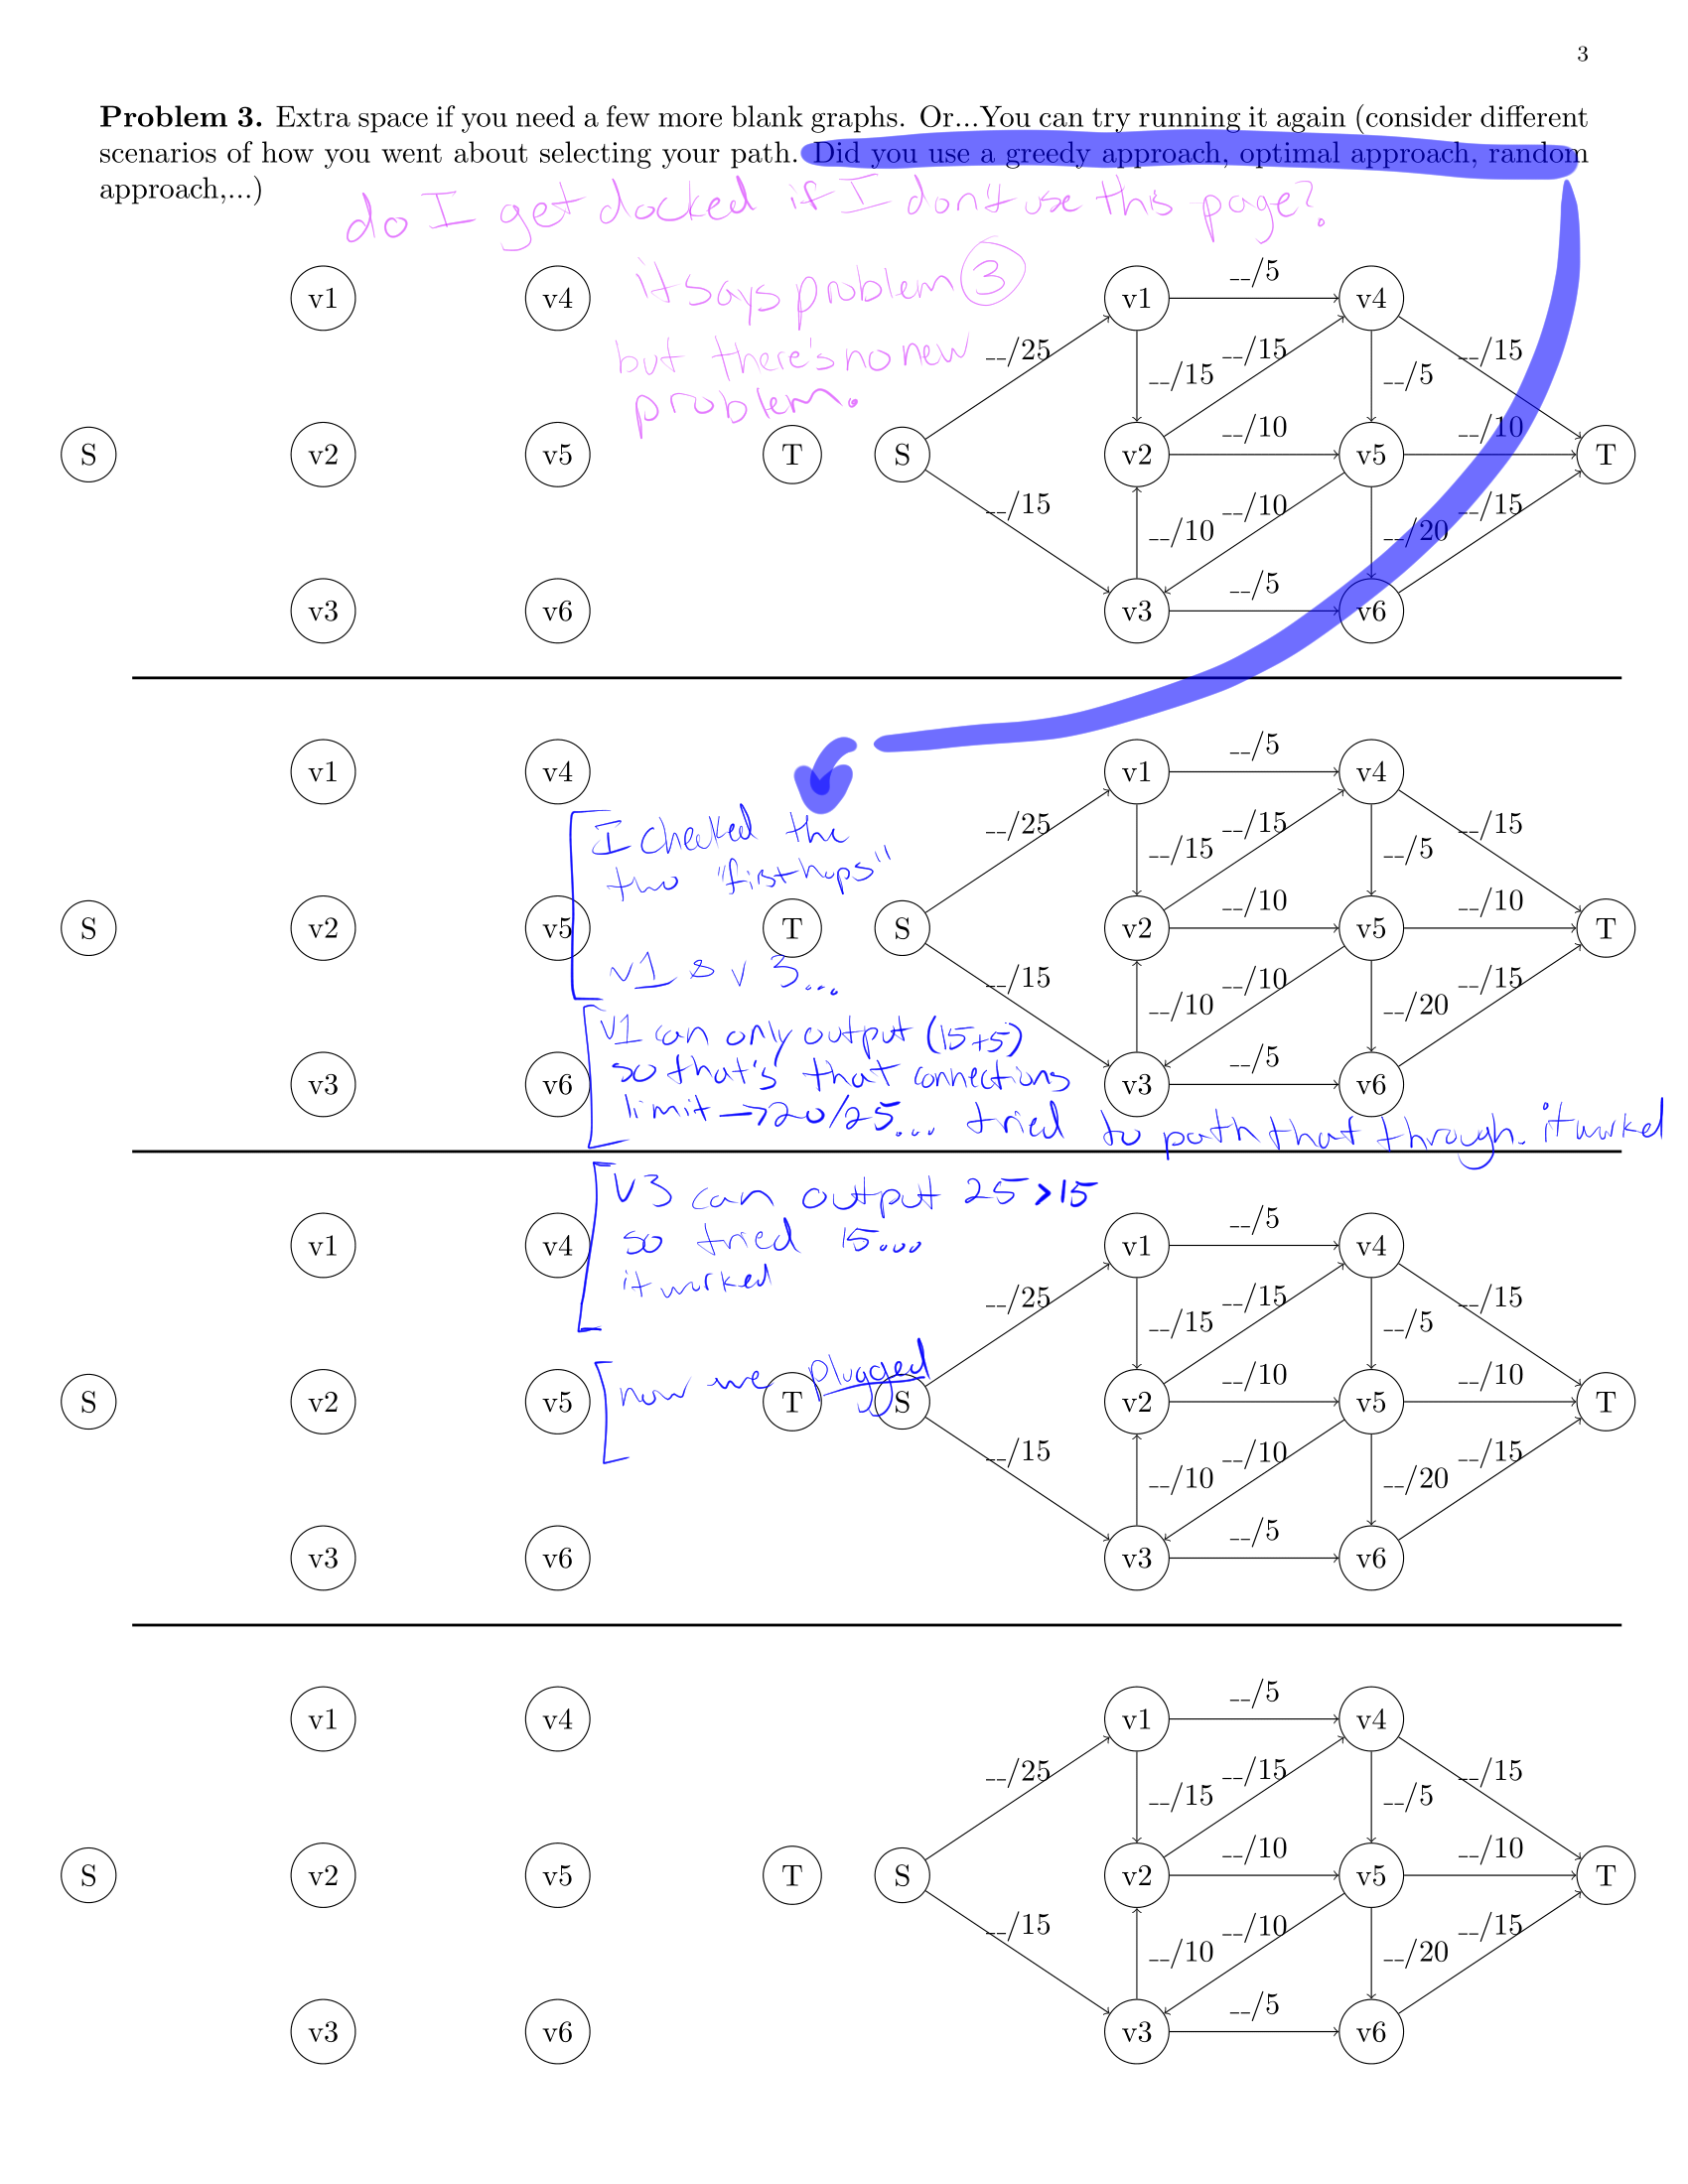 3
Problem 3. Extra space if you need a few more blank graphs. Or...You can try running it again (consider different
scenarios of how you went about selecting your path. Did you use a greedy approach, optimal approach, random
approach,...)
do I get docked if I don't use this page?
it says problem 3
but there's no new
problem.
v1 v4
S v2 v5 T
v3 v6
v1 __/5 v4
__/25 __/15 __/15 __/5 __/15
S v2 __/10 v5 __/10 T
__/15 __/10 __/10 __/20 __/15
v3 __/5 v6
v1 v4
S v2 v5 T
v3 v6
I checked the
two "first hops"
v1 & v3...
v1 can only output (15+5)
so that's that connections
limit → 20/25... tried to path that through. it worked
v1 __/5 v4
__/25 __/15 __/15 __/5 __/15
S v2 __/10 v5 __/10 T
__/15 __/10 __/10 __/20 __/15
v3 __/5 v6
v1 v4
S v2 v5 T
v3 v6
V3 can output 25 > 15
so tried 15...
it worked
now we plugged
v1 __/5 v4
__/25 __/15 __/15 __/5 __/15
S v2 __/10 v5 __/10 T
__/15 __/10 __/10 __/20 __/15
v3 __/5 v6
v1 v4
S v2 v5 T
v3 v6
v1 __/5 v4
__/25 __/15 __/15 __/5 __/15
S v2 __/10 v5 __/10 T
__/15 __/10 __/10 __/20 __/15
v3 __/5 v6